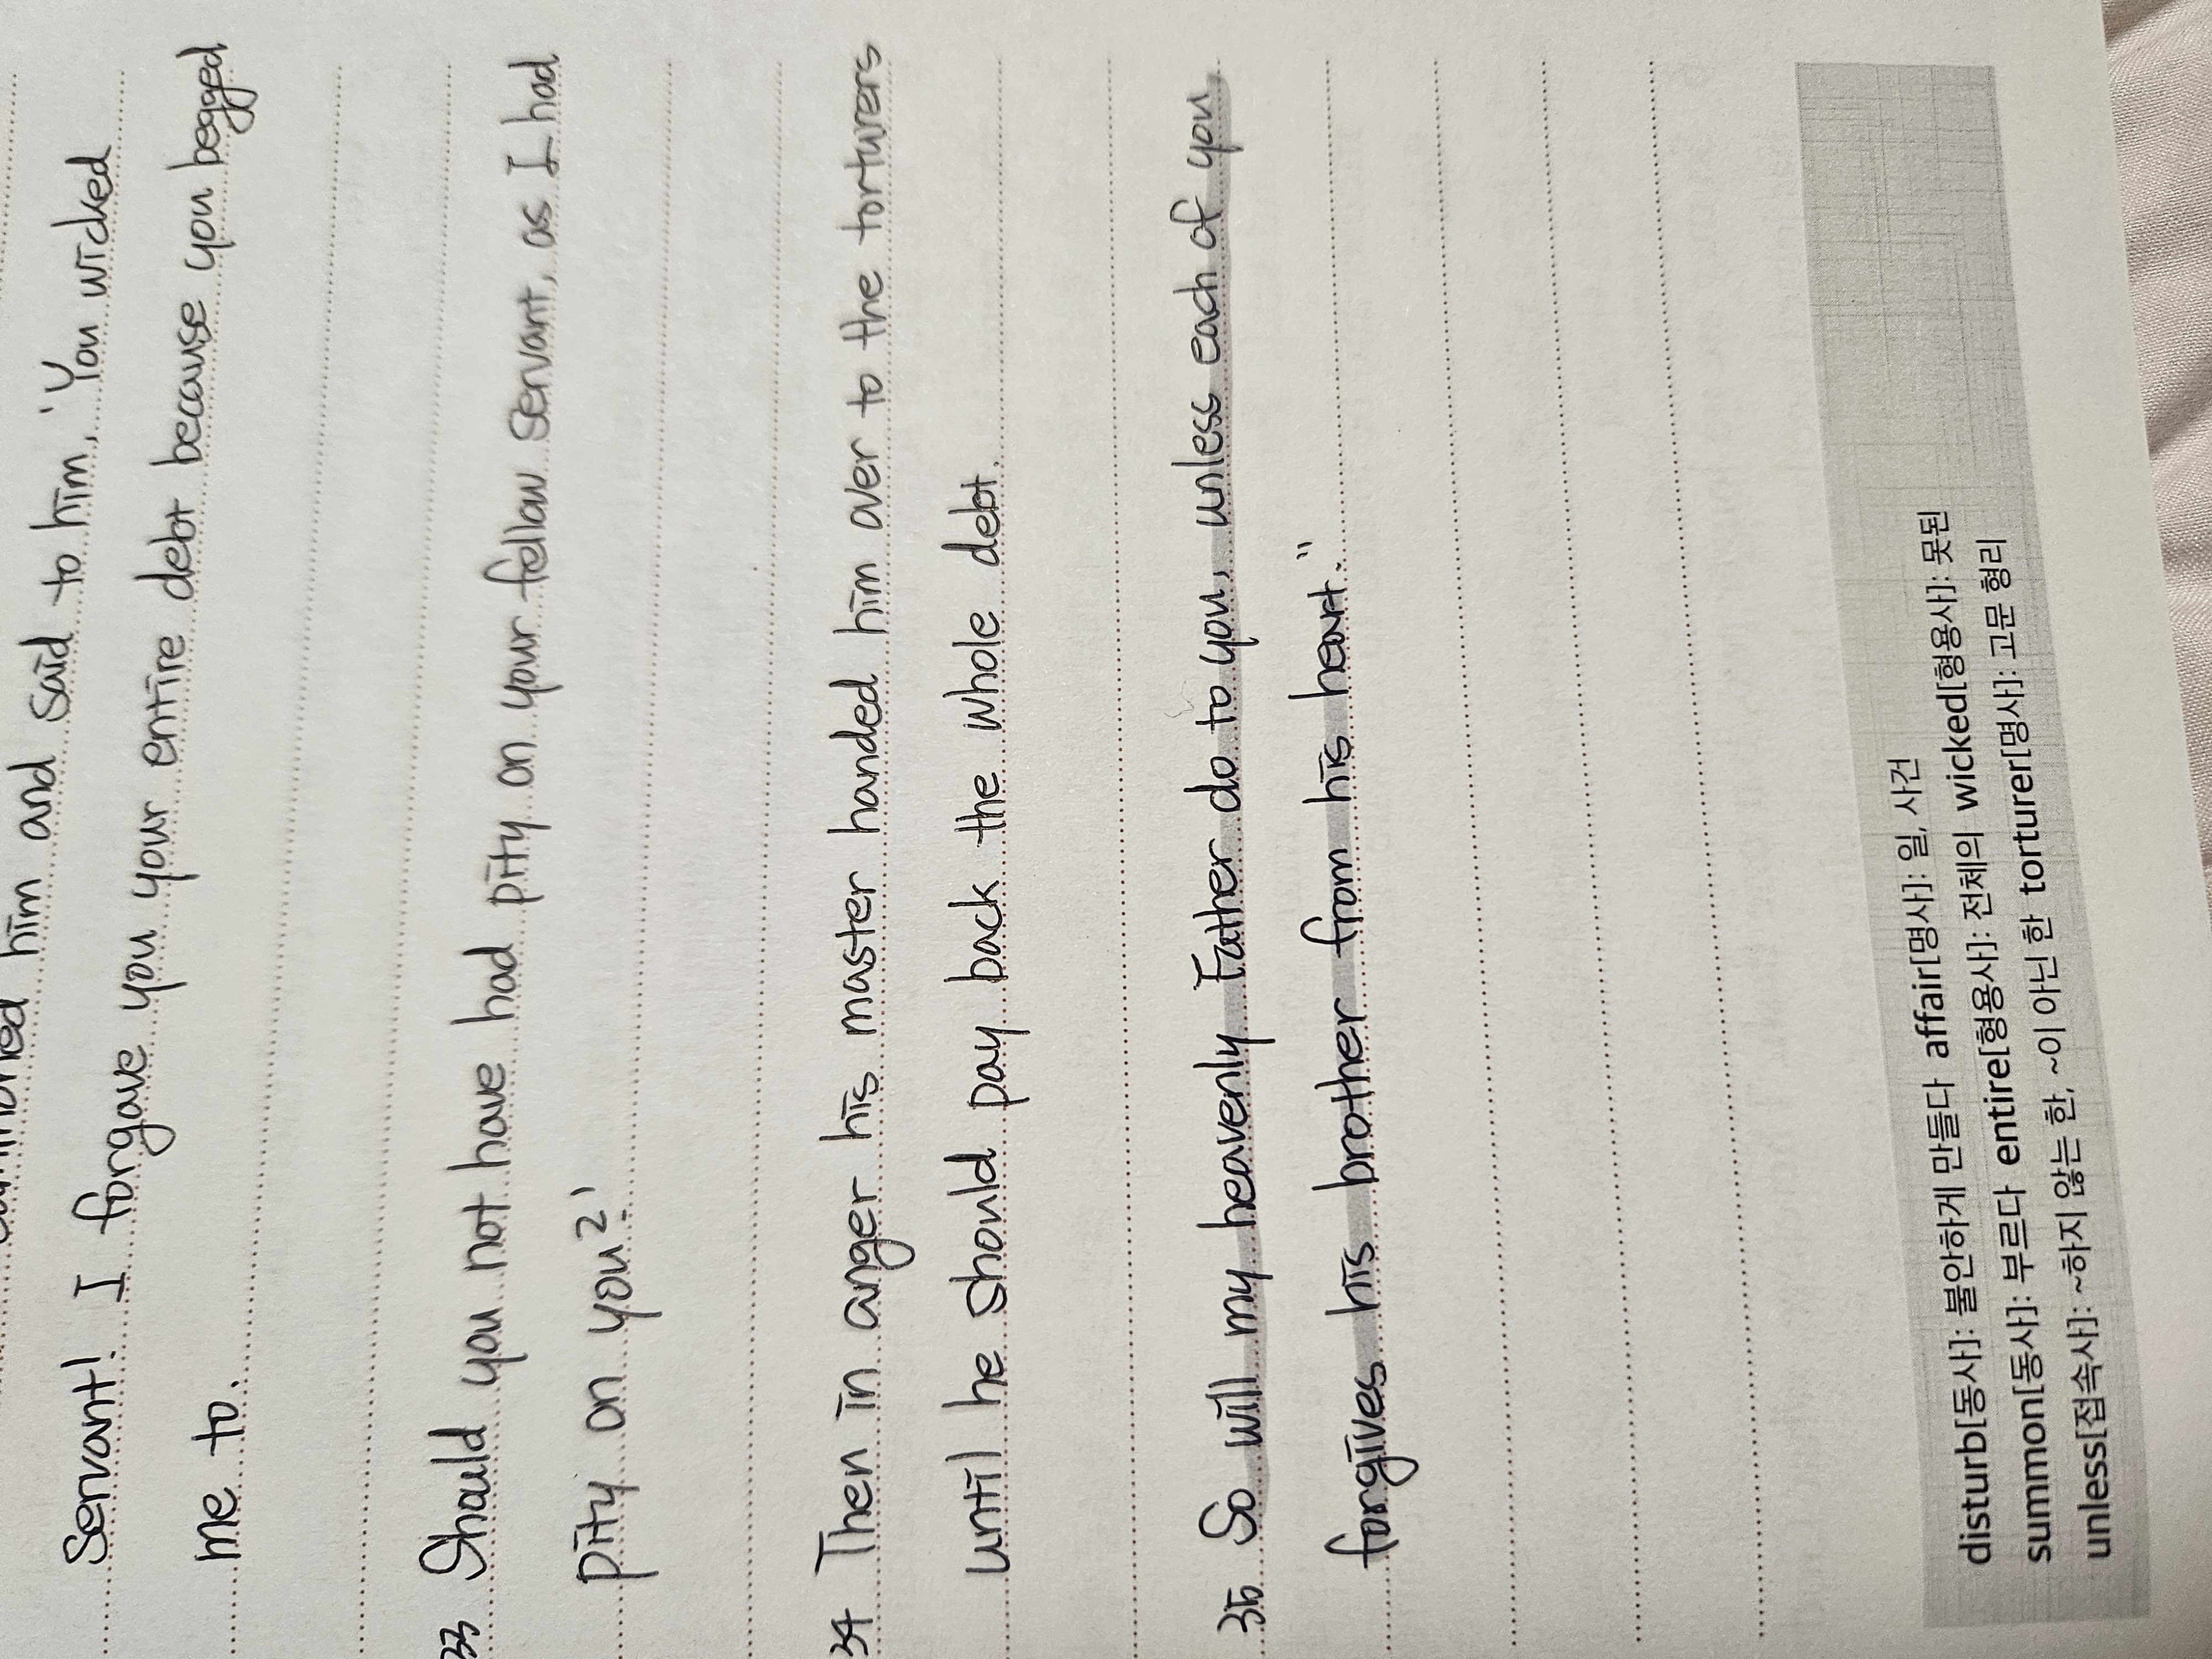 him and said to him, 'You wicked
Servant! I forgave you your entire debt because you begged
me to.
33 Should you not have had pity on your fellow Servant, as I had
pity on you?'
34 Then in anger his master handed him over to the torturers
until he should pay back the whole debt.
35 So will my heavenly Father do to you, unless each of you
forgives his brother from his heart."
disturb[동사]: 불안하게 만들다 affair[명사]: 일, 사건
summon[동사]: 부르다 entire[형용사]: 전체의 wicked[형용사]: 못된
unless[접속사]: ~하지 않는 한, ~이 아닌 한 torturer[명사]: 고문 형리